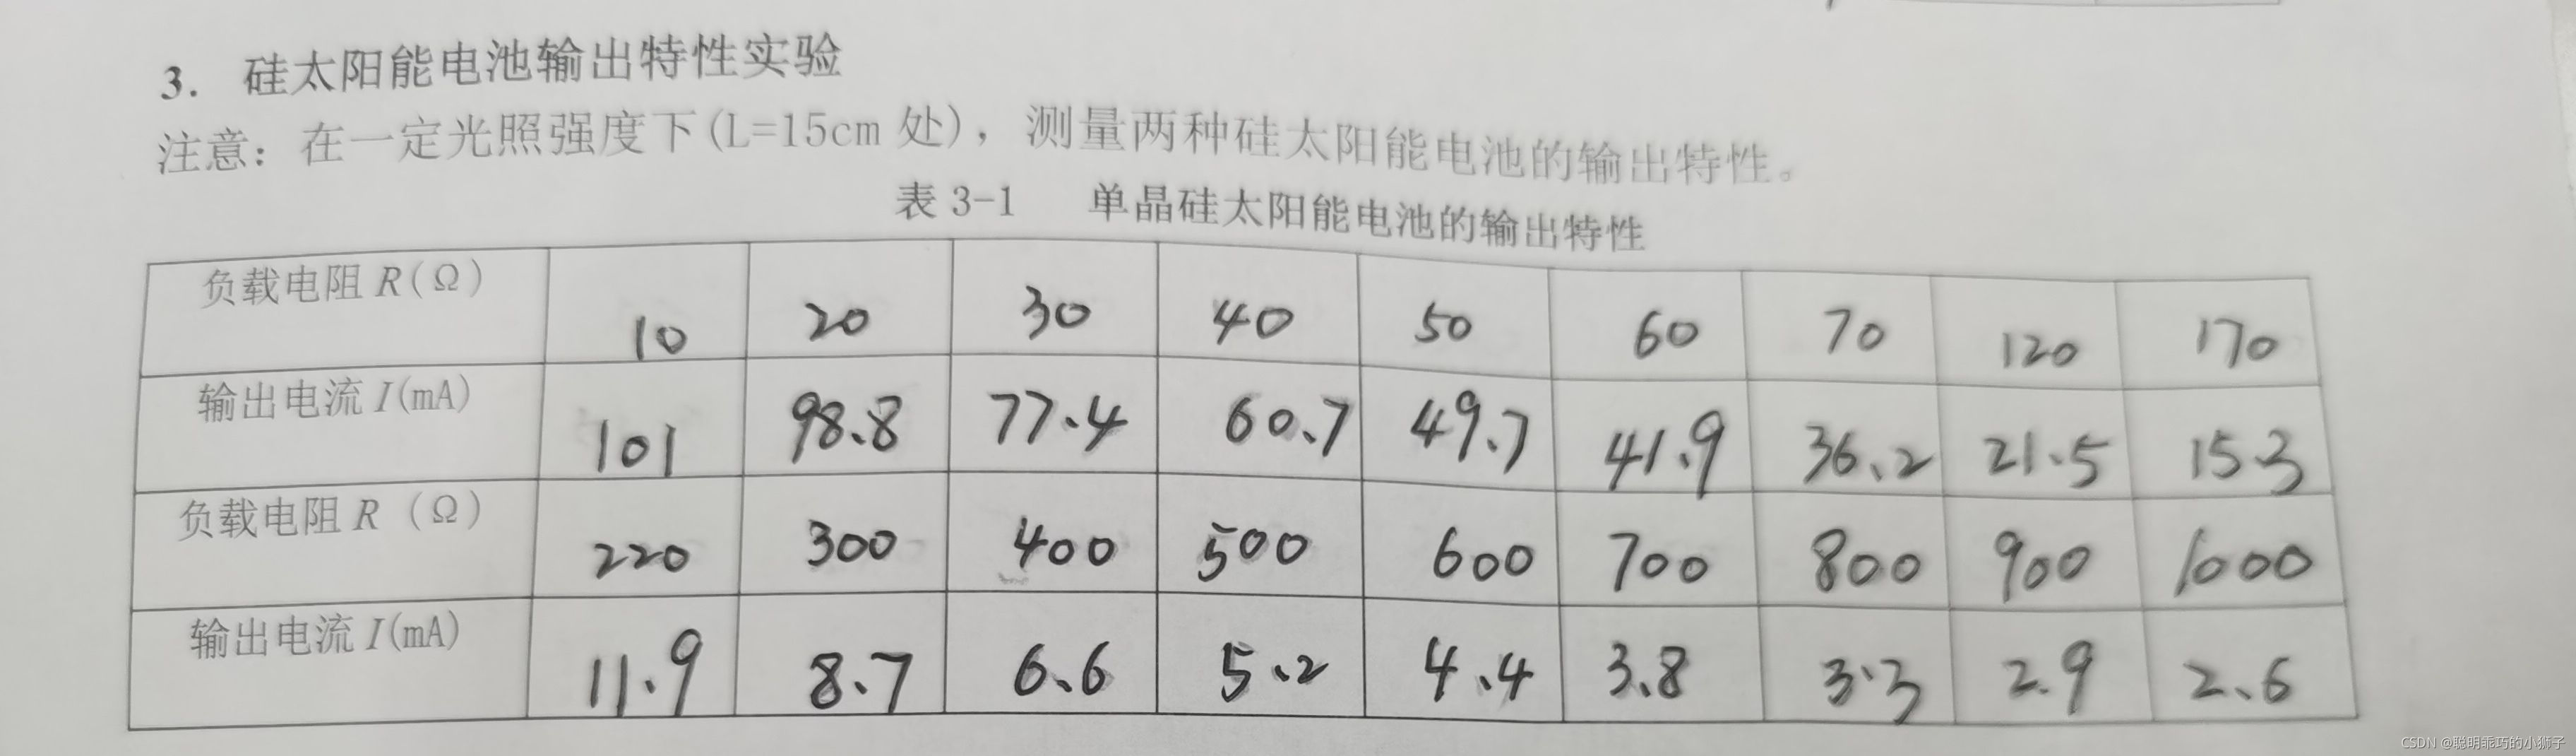 3. 硅太阳能电池输出特性实验
注意：在一定光照强度下(L=15cm 处)，测量两种硅太阳能电池的输出特性。
表 3-1 单晶硅太阳能电池的输出特性
负载电阻 R(Ω) 10 20 30 40 50 60 70 120 170
输出电流 I(mA) 101 98.8 77.4 60.7 49.7 41.9 36.2 21.5 15.3
负载电阻 R (Ω) 220 300 400 500 600 700 800 900 1000
输出电流 I(mA) 11.9 8.7 6.6 5.2 4.4 3.8 3.3 2.9 2.6
CSDN @聪明乖巧的小狮子